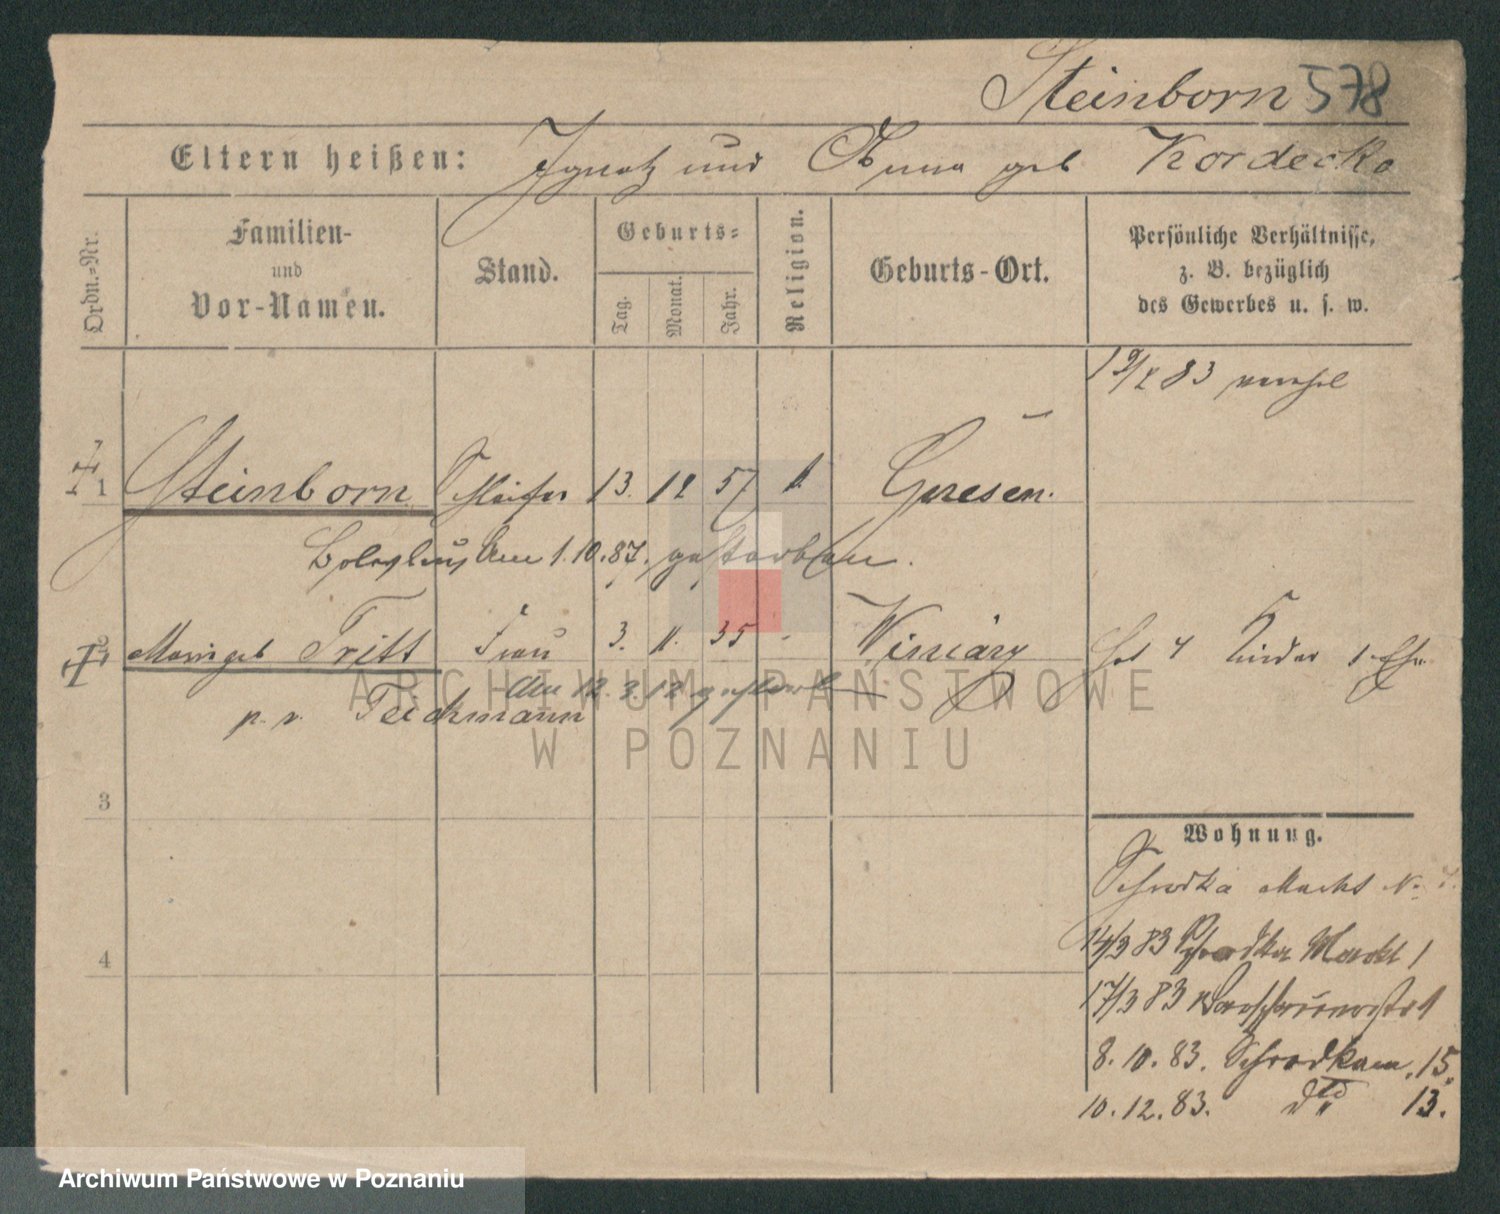 Steinborn 578
Eltern heißen: Ignatz und Anna geb Kordecka
Ordn.=Nr.
Familien-
und
Vor-Namen.
Stand.
Geburts=
Tag.
Monat.
Jahr.
Religion.
Geburts-Ort.
Persönliche Verhältnisse,
z. B. bezüglich
des Gewerbes u. s. w.
19/X 83
1 Steinborn 13. 12 57 k. Gnesen.
Boleslaus Am 1.10.87. gestorben.
2 geb Tritt Frau 3. 11. 35 - Winiary Hat 4 Kinder 1 Ehe
Am 12.3.12 gestorb
p. v. Teichmann
3
4
Wohnung.
Schrodka Markt N.
14/3 83 Schrodka Markt 1
17/3 83
8. 10. 83. Schrodkam. 15.
10. 12. 83. dto 13.
ARCHIWUM PAŃSTWOWE
W POZNANIU
Archiwum Państwowe w Poznaniu